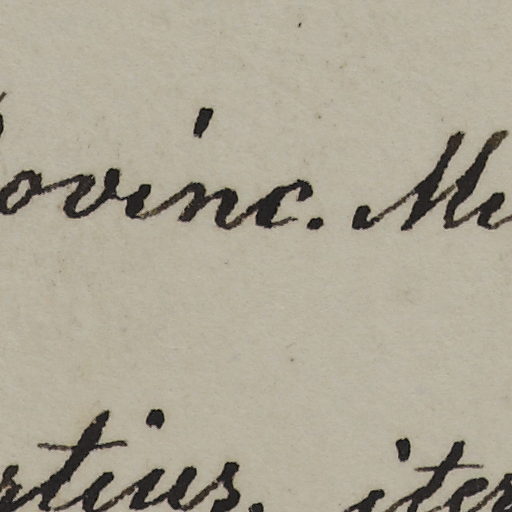 ovinc. Mi
rtius, iter